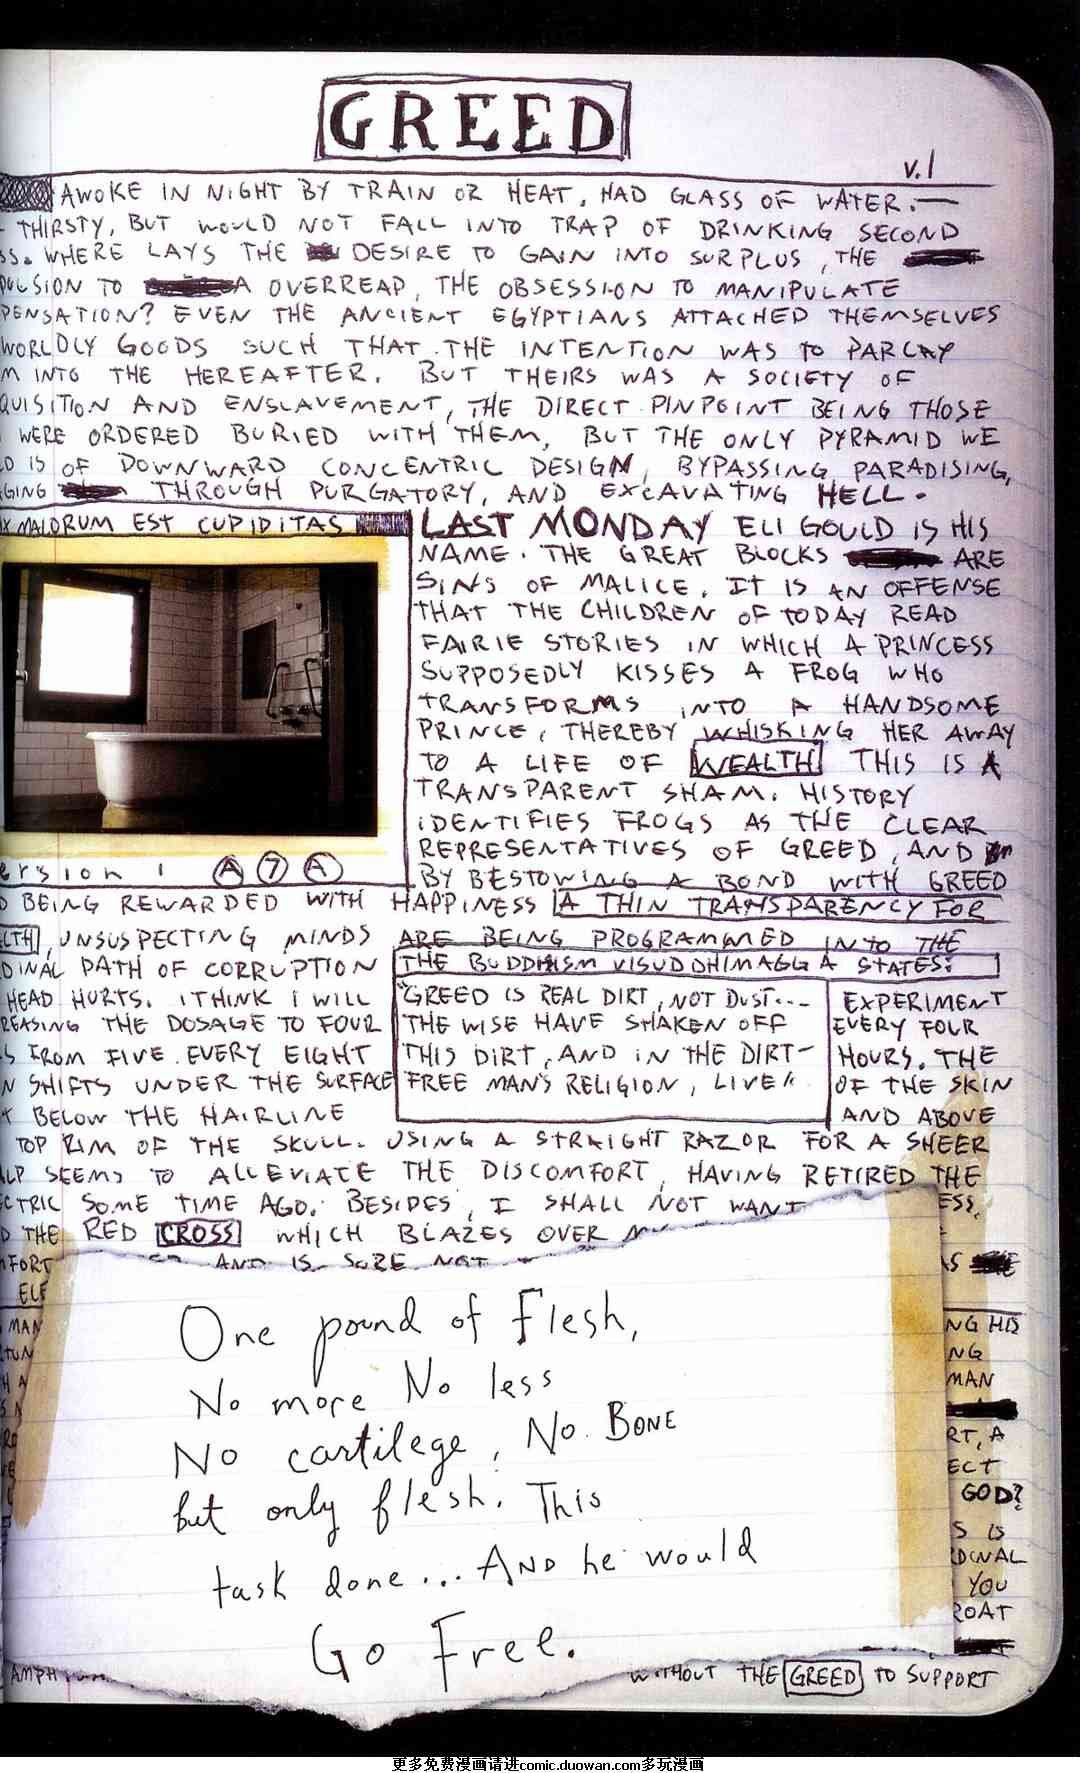 GREED
V.1
AWOKE IN NIGHT BY TRAIN OR HEAT, HAD GLASS OF WATER.—
THIRSTY, BUT WOULD NOT FALL INTO TRAP OF DRINKING SECOND
SS. WHERE LAYS THE DESIRE TO GAIN INTO SURPLUS, THE
PULSION TO A OVERREAP, THE OBSESSION TO MANIPULATE
PENSATION? EVEN THE ANCIENT EGYPTIANS ATTACHED THEMSELVES
WORLDLY GOODS SUCH THAT THE INTENTION WAS TO PARLAY
M INTO THE HEREAFTER. BUT THEIRS WAS A SOCIETY OF
QUISITION AND ENSLAVEMENT, THE DIRECT PINPOINT BEING THOSE
WERE ORDERED BURIED WITH THEM, BUT THE ONLY PYRAMID WE
D IS OF DOWNWARD CONCENTRIC DESIGN, BYPASSING PARADISING,
GING THROUGH PURGATORY, AND EXCAVATING HELL.
X MALORUM EST CUPIDITAS
LAST MONDAY ELI GOULD IS HIS
NAME. THE GREAT BLOCKS ARE
SINS OF MALICE. IT IS AN OFFENSE
THAT THE CHILDREN OF TODAY READ
FAIRIE STORIES IN WHICH A PRINCESS
SUPPOSEDLY KISSES A FROG WHO
TRANSFORMS INTO A HANDSOME
PRINCE, THEREBY WHISKING HER AWAY
TO A LIFE OF WEALTH THIS IS A
TRANSPARENT SHAM. HISTORY
IDENTIFIES FROGS AS THE CLEAR
REPRESENTATIVES OF GREED, AND
BY BESTOWING A BOND WITH GREED
ersion 1 A 7 A
D BEING REWARDED WITH HAPPINESS A THIN TRANSPARENCY FOR
LTH, UNSUSPECTING MINDS ARE BEING PROGRAMMED INTO THE
DINAL PATH OF CORRUPTION
THE BUDDHISM VISUDDHIMAGGA STATES:
HEAD HURTS. I THINK I WILL
REASING THE DOSAGE TO FOUR
S FROM FIVE EVERY EIGHT
N SHIFTS UNDER THE SURFACE
T BELOW THE HAIRLINE
"GREED IS REAL DIRT, NOT DUST...
THE WISE HAVE SHAKEN OFF
THIS DIRT, AND IN THE DIRT-
FREE MAN'S RELIGION, LIVE"
EXPERIMENT
EVERY FOUR
HOURS. THE
OF THE SKIN
AND ABOVE
TOP RIM OF THE SKULL. USING A STRAIGHT RAZOR FOR A SHEER
LP SEEMS TO ALLEVIATE THE DISCOMFORT, HAVING RETIRED THE
CTRIC SOME TIME AGO. BESIDES, I SHALL NOT WANT ESS.
D THE RED CROSS WHICH BLAZES OVER
MFORT AND IS SURE NOT AS
ELE
MAN NG HIS
TUN NG
H A MAN
RT, A
ECT
GOD?
S IS
RDINAL
YOU
ROAT
One pound of Flesh,
No more No less
No cartilege, No BONE
but only flesh. This
task done... AND he would
Go Free.
AMPH WITHOUT THE GREED TO SUPPORT
更多免费漫画请进comic.duowan.com多玩漫画